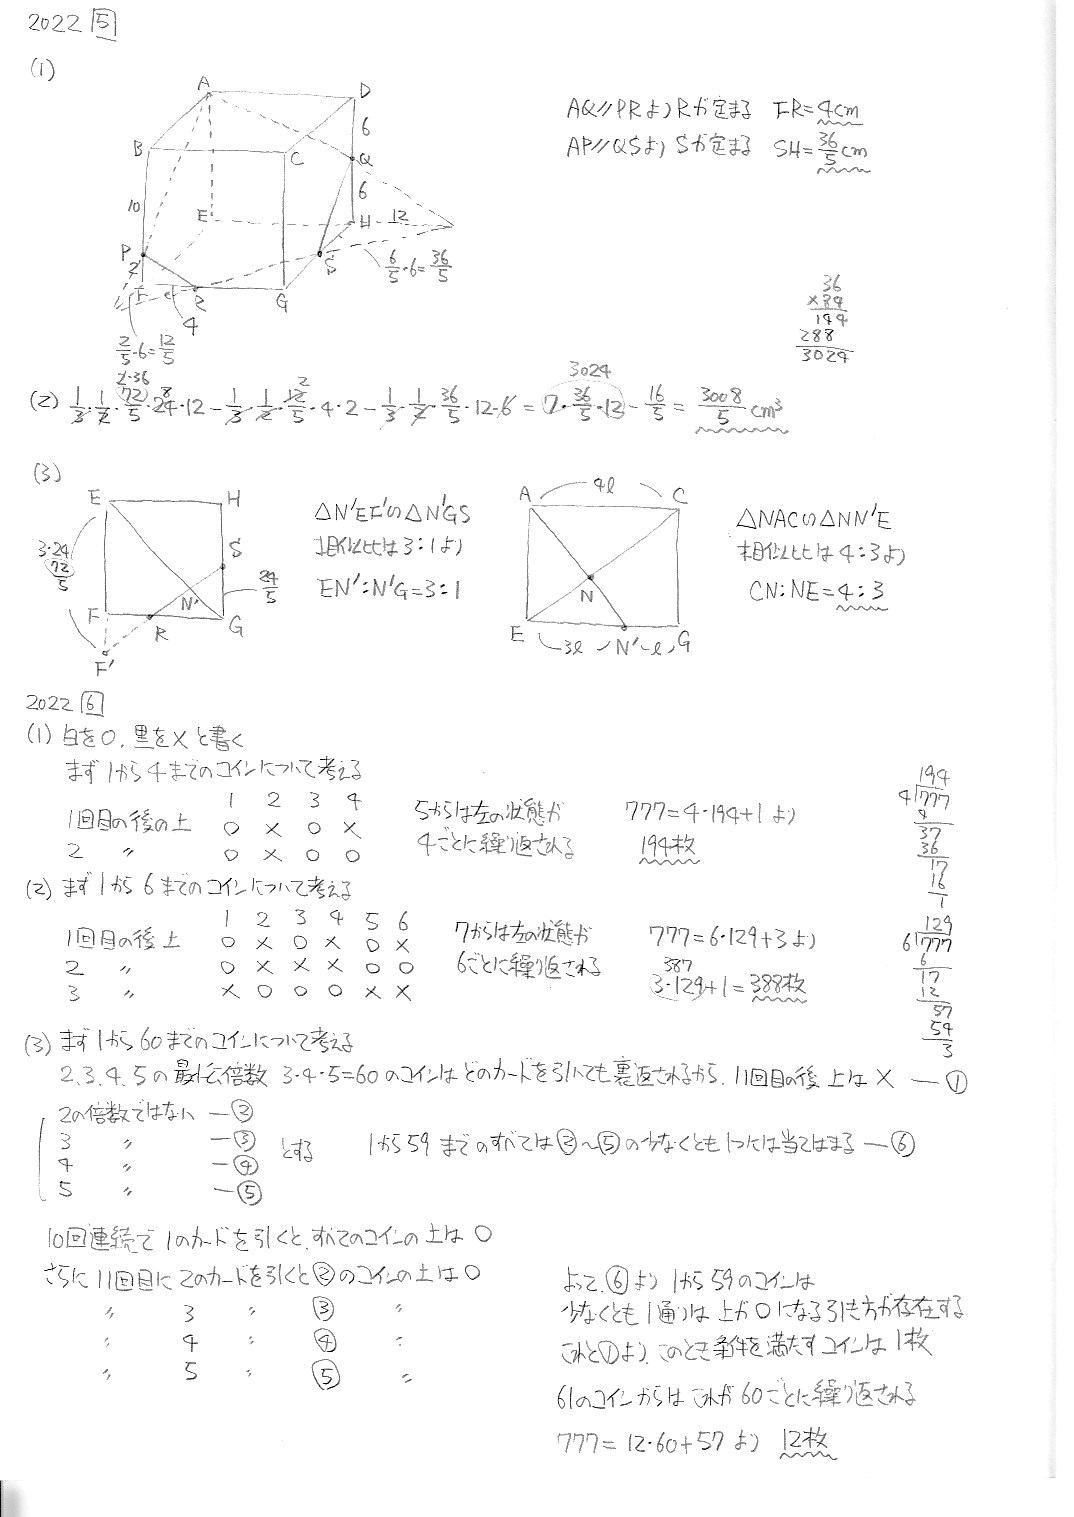 2022 5
(1)
A
D
6
B
C
Q
10
6
E
H
12
P
2
S
6/5・6=36/5
F
R
G
4
2/5・6=12/5
AQ//PRよりRが定まる FR=4cm
AP//QSよりSが定まる SH=36/5cm
36
×84
144
288
3024
(2) 1/3・1/2・72/5・24・12-1/3・1/2・12/5・4・2-1/3・1/2・36/5・12・6=7・36/5・12-16/5=3008/5cm³
2・36
8
2
3024
(3)
E
H
3・24
72/5
S
24/5
F
N'
R
G
F'
△N'EF'∽△N'GS
相似比は3:1より
EN':N'G=3:1
A 4ℓ C
N
E 3ℓ N' ℓ G
△NAC∽△NN'E
相似比は4:3より
CN:NE=4:3
2022 6
(1) 白を○,黒を×と書く
まず1から4までのコインについて考える
1 2 3 4
1回目の後の上 ○ × ○ ×
2 〃 ○ × ○ ○
5からは左の状態が
4ごとに繰り返される
777=4・194+1より
194枚
194
4)777
4
37
36
17
16
1
(2) まず1から6までのコインについて考える
1 2 3 4 5 6
1回目の後 上 ○ × ○ × ○ ×
2 〃 ○ × × × ○ ○
3 〃 × ○ ○ ○ × ×
7からは左の状態が
6ごとに繰り返される
777=6・129+3より
387
3・129+1=388枚
129
6)777
6
17
12
57
54
3
(3) まず1から60までのコインについて考える
2,3,4,5の最小公倍数 3・4・5=60のコインはどのカードを引いても裏返されるから,11回目の後 上は× ー①
2の倍数ではない ー②
3 〃 ー③
4 〃 ー④
5 〃 ー⑤
とする
1から59までのすべては②〜⑤の少なくとも1つは当てはまる ー⑥
10回連続で1のカードを引くと,すべてのコインの上は○
さらに11回目に2のカードを引くと②のコインの上は○
〃 3 〃 ③ 〃
〃 4 〃 ④ 〃
〃 5 〃 ⑤ 〃
よって,⑥より1から59のコインは
少なくとも1通りは上が○になる引き方が存在する
これと①より,このとき条件を満たすコインは1枚
61のコインからはこれが60ごとに繰り返される
777=12・60+57より 12枚